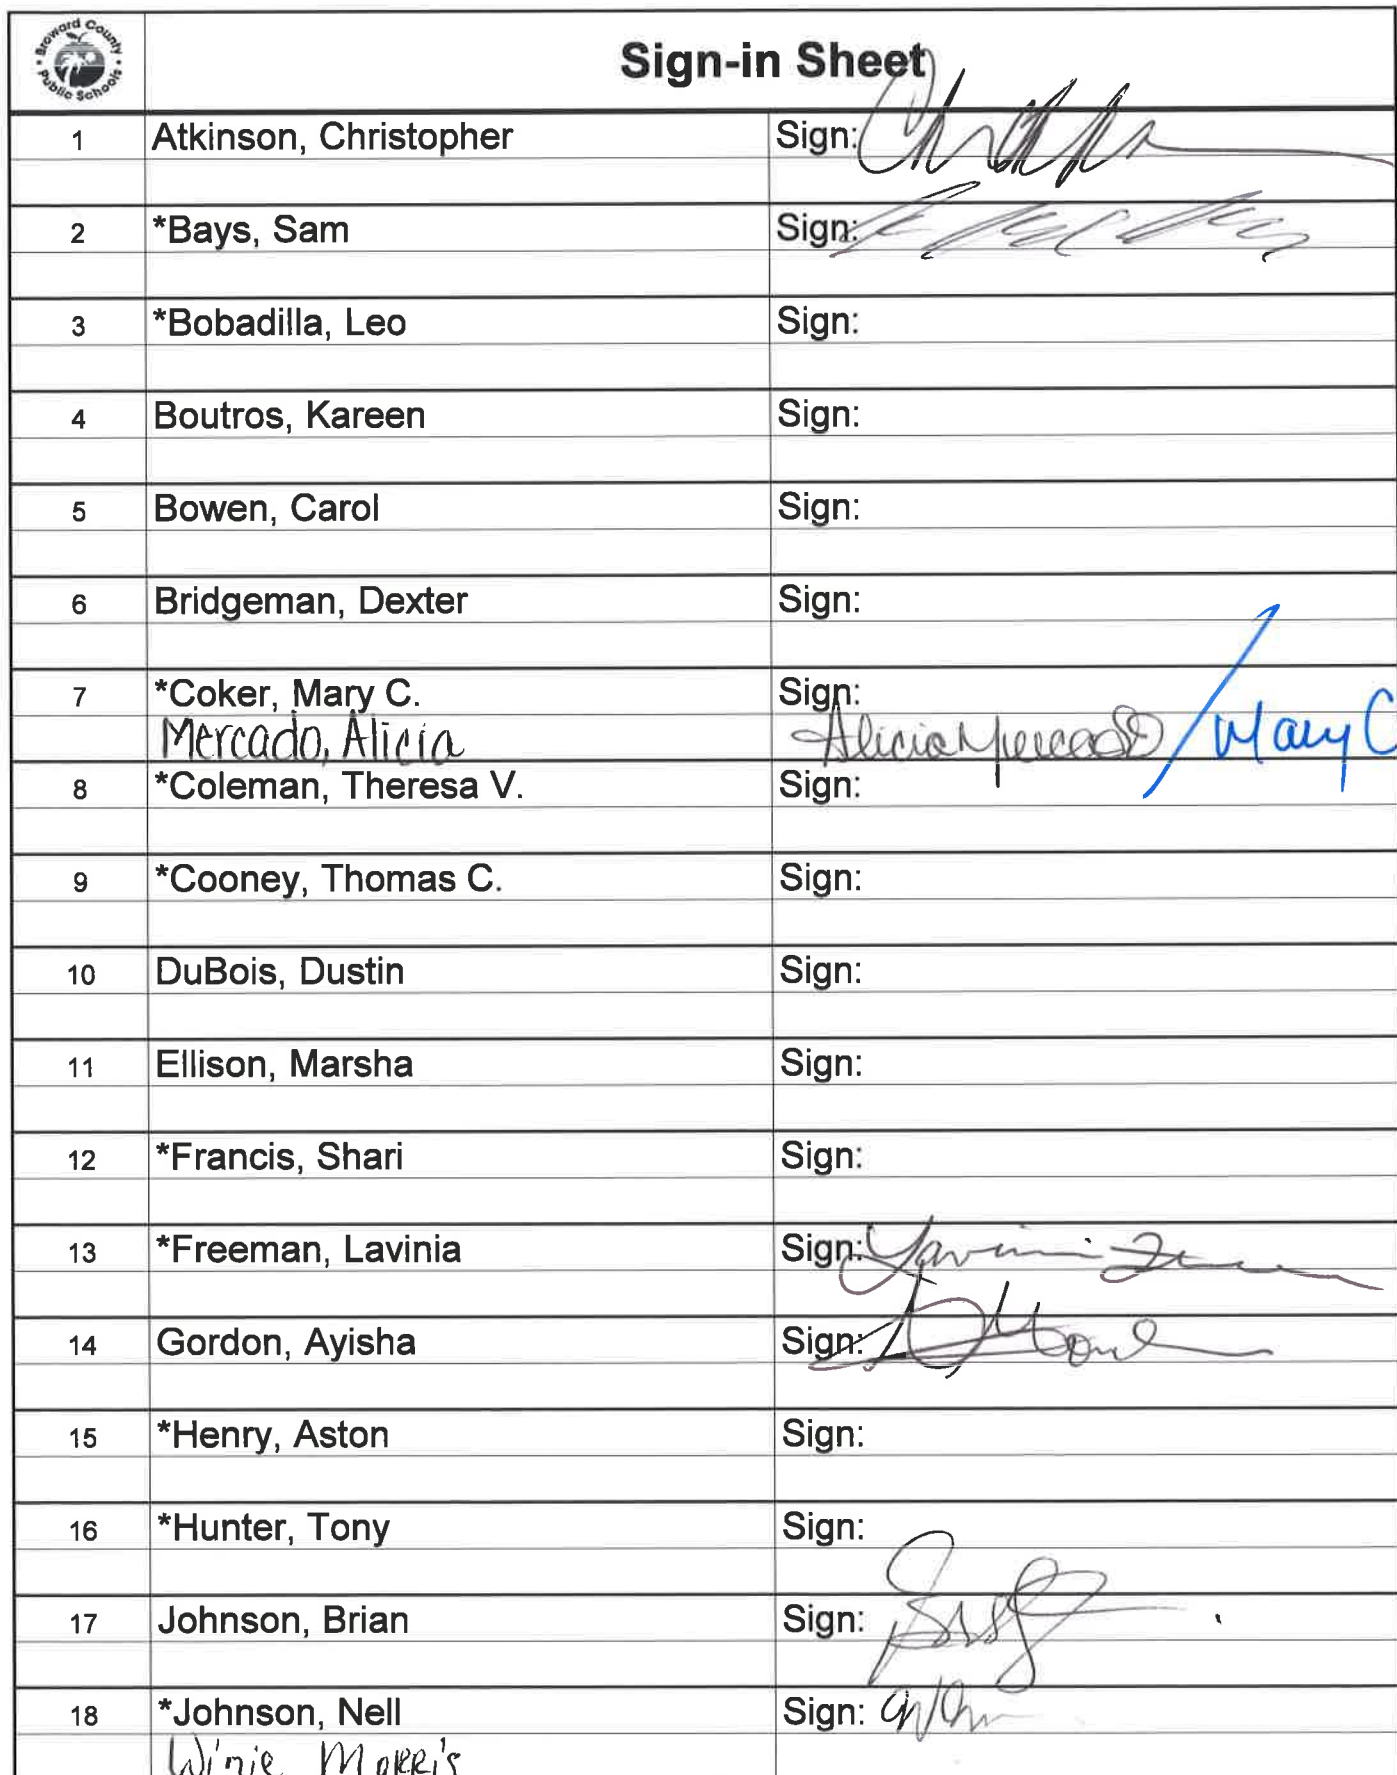 Broward County
Public Schools
Sign-in Sheet
1 Atkinson, Christopher Sign:
2 *Bays, Sam Sign:
3 *Bobadilla, Leo Sign:
4 Boutros, Kareen Sign:
5 Bowen, Carol Sign:
6 Bridgeman, Dexter Sign:
7 *Coker, Mary C. Sign:
Mercado, Alicia Alicia Mercado / Mary C
8 *Coleman, Theresa V. Sign:
9 *Cooney, Thomas C. Sign:
10 DuBois, Dustin Sign:
11 Ellison, Marsha Sign:
12 *Francis, Shari Sign:
13 *Freeman, Lavinia Sign: Lavinia
14 Gordon, Ayisha Sign:
15 *Henry, Aston Sign:
16 *Hunter, Tony Sign:
17 Johnson, Brian Sign:
18 *Johnson, Nell Sign:
Morris